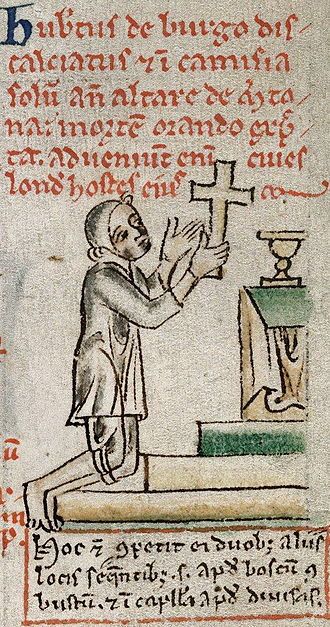 Hub'tus de burgo dis-
calciatus ⁊ i camisia
solū añ altare de My'to-
na: mortē orando exp̄c-
tat. adveniūt eni' cives
lond' hostes ei9
Hoc ⁊ 9tetit ei duob; aliis
locis seq̄ntib;. s. ap'd boscū 9
bustū. ⁊ i capll'a ap'd divisas.